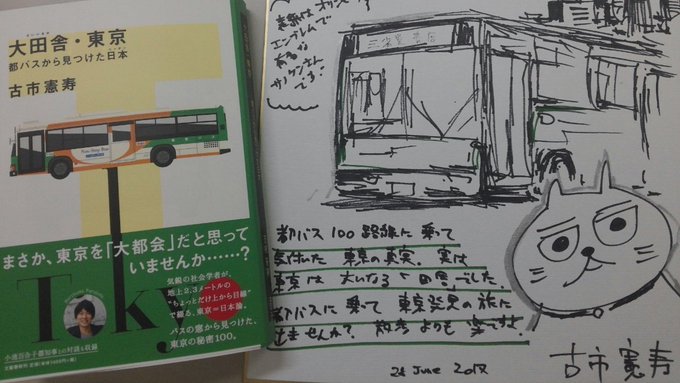 大田舎・東京
都バスから見つけた日本
古市憲寿
まさか、東京を「大都会」だと思って
いませんか……?
Toky
気鋭の社会学者が、
地上2.3メートルの
“ちょっとだけ上から目線”
で綴る、東京=日本論。
バスの窓から見つけた、
東京の秘密100。
小池百合子都知事との対談も収録
都バス100路線に乗って
東京の真実。実は
東京は大いなる「田舎」でした。
都バスに乗って東京発見の旅に
出ませんか?散歩よりも楽ですよ
古市憲寿
28 June 2017